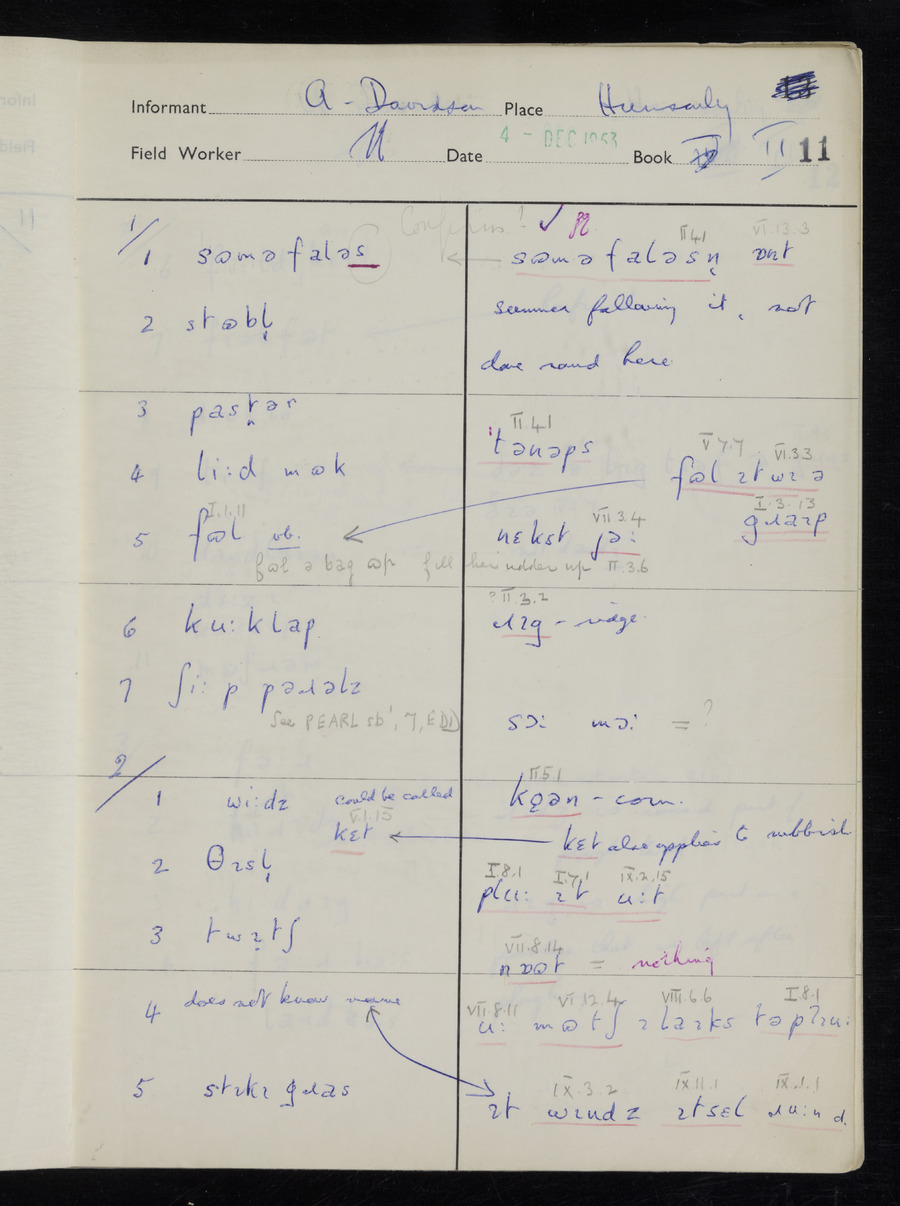 Informant A. Davidson Place
Field Worker Date 4 - DEC 1953 Book II 11
1/
Confirm! ✓
1 sɷməfaləs
II 4.1 VI.13.3
sɷməfaləsn̩ ɒnt
2 stɷbl̩
summer following it, not
done round here
3 pastər
4 li:d mɷk
II.4.1
tənəps
V 7.7 VI.3.3
fɷl ɪtwɪ ə
I.1.11
5 fɷl vb.
VII 3.4
nɛkst jə:
I.3.13
gɹaɪp
fɷl ə bag ɷp fill her udder up II.3.6
6 ku:klap
? II.3.2
ɹɪg - ridge.
7 ʃi:p pəɹəlz
See PEARL sb', 7, EDD
sə: mə: = ?
2/
1 wi:dz could be called
V.1.15
kɛt
II 5.1
kɔən - corn.
kɛt also applies to rubbish
2 θɪsl̩
I.8.1 I.7.1 IX.2.15
plu: ɪt u:t
3 twɪtʃ
VII.8.14
nɒɷt = nothing
4 does not know name
VII.8.11 VI.12.4 VIII.6.6 I.8.1
u: mɷtʃ ɪ laɪks təplɪu:
5 stɪkɪ gɹas
IX.3.2 IX 11.1 IX.1.1
ɪt wɪndz ɪtsɛl ɹu:nd.